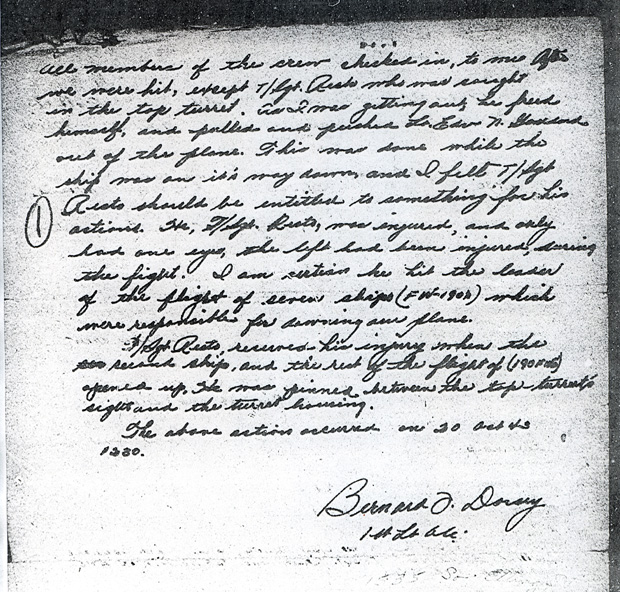 All members of the crew checked in, to me After
we were hit, except T/Sgt. Resto who was caught
in the top turret. As I was getting out, he freed
himself, and pulled and pushed Lt. Edw. N. Goddard
out of the plane. This was done while the
ship was on it's way down, and I felt T/Sgt
1 Resto should be entitled to something for his
actions. He, T/Sgt. Resto, was injured, and only
had one eye, the left had been injured, during
the fight. I am certain he hit the leader
of the flight of seven ships (FW-190's) which
were responsible for downing our plane.
T/Sgt. Resto, received his injury when the
second ship, and the rest of the flight of (190 FWs)
opened up, He was pinned between the top turret's
sight and the turret housing.
The above action occurred on 20 Oct 43
1330.
Bernard J. Dorsey
1st Lt A.C.